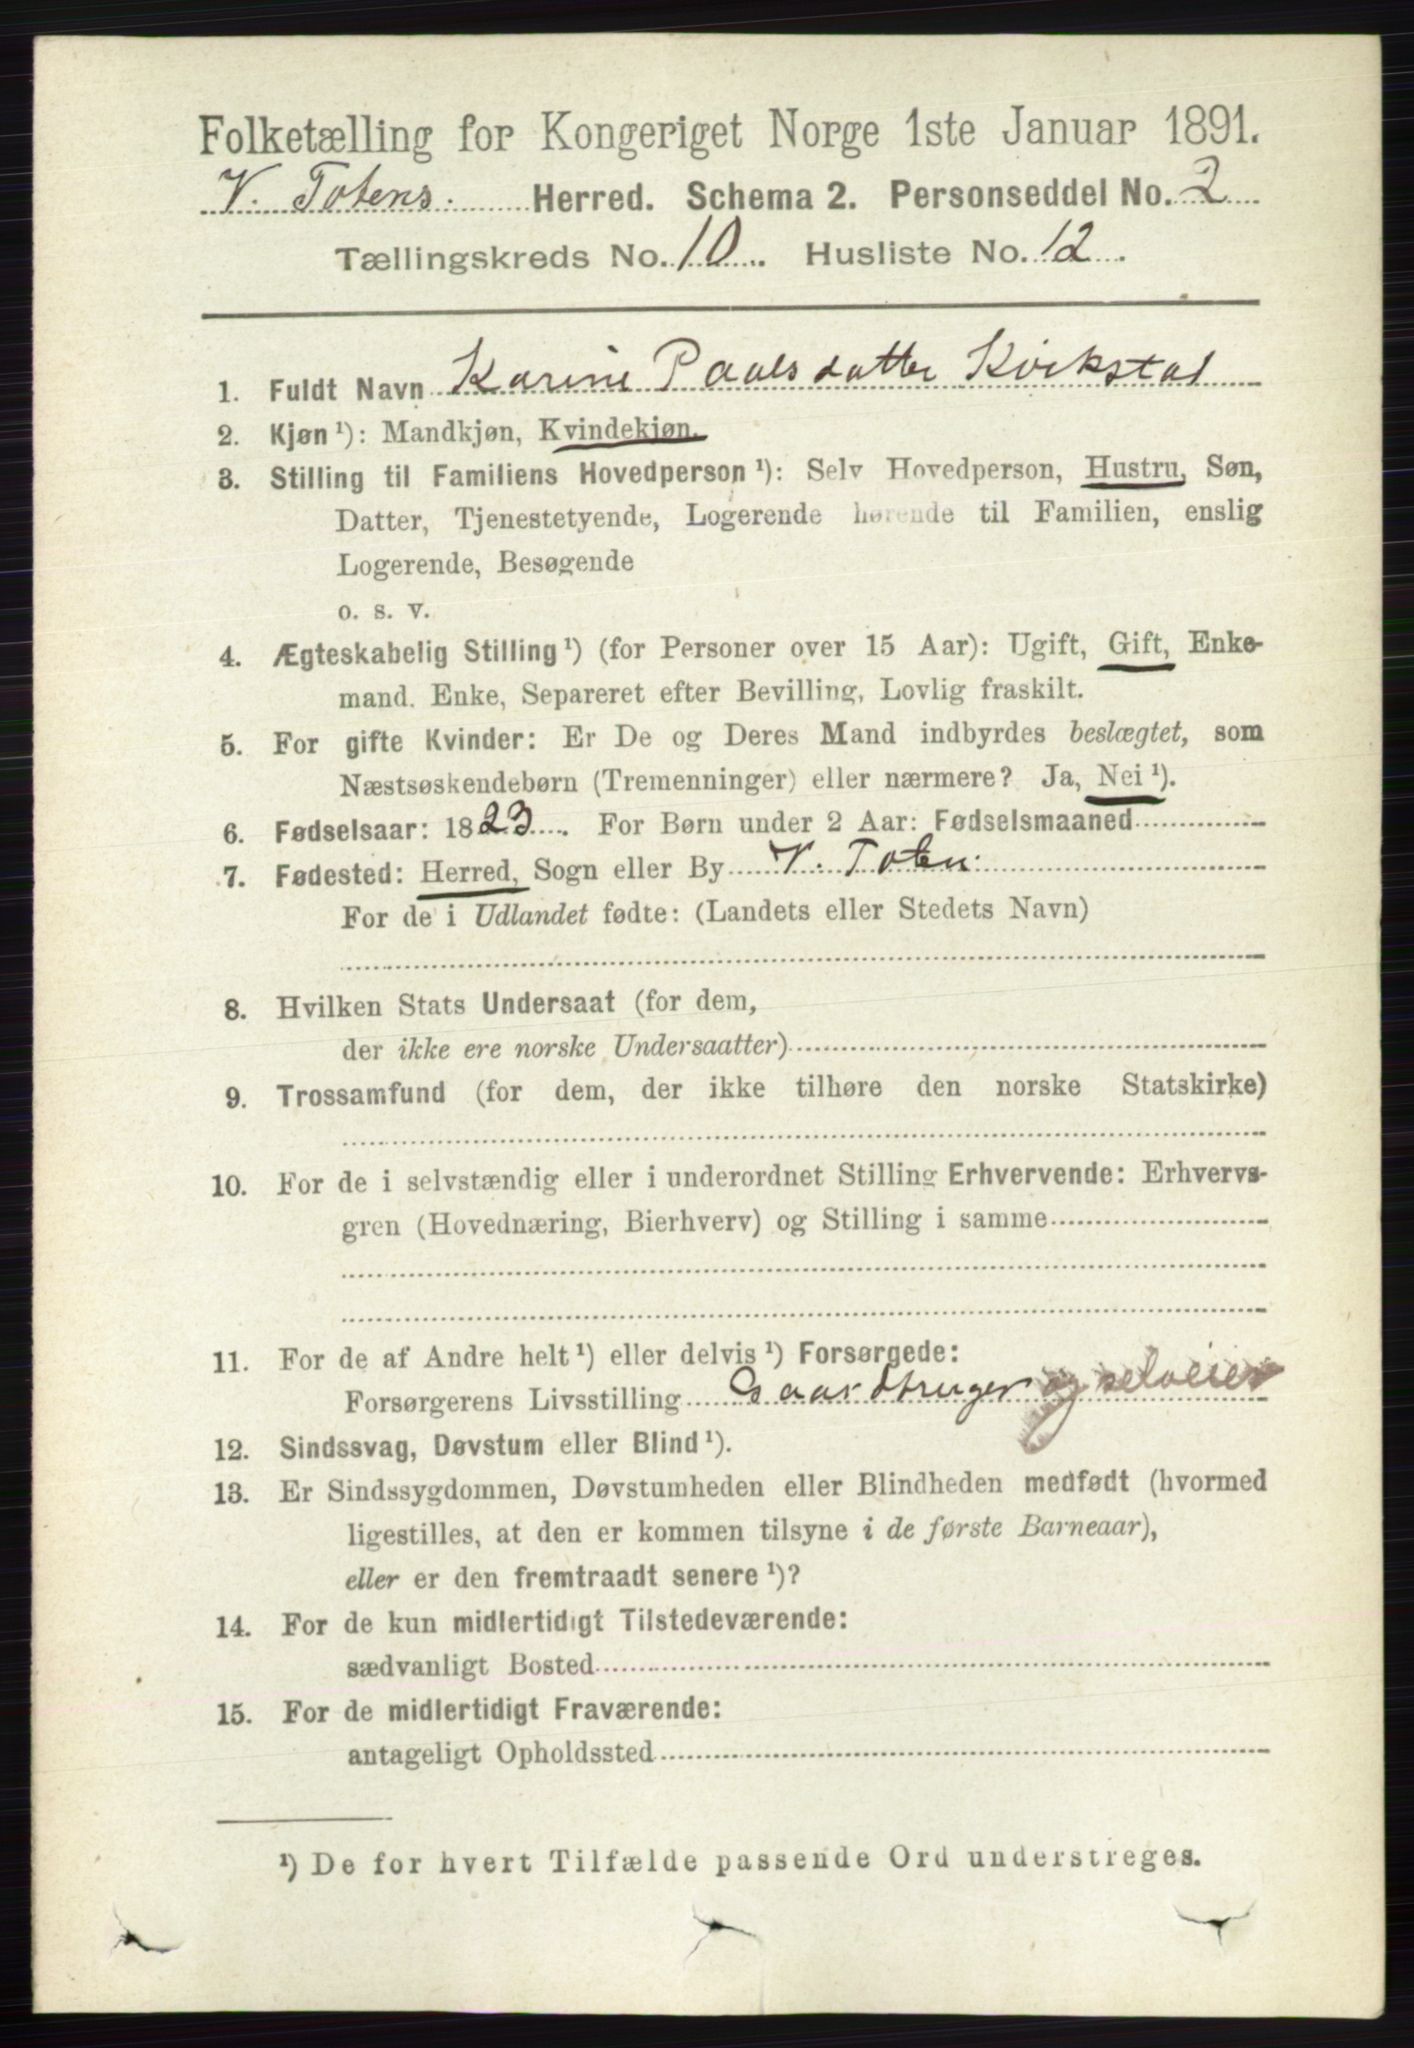 Folketælling for Kongeriget Norge 1ste Januar 1891.
V. Totens. Herred. Schema 2. Personseddel No. 2
Tællingskreds No. 10. Husliste No. 12
1. Fuldt Navn Karine Paalsdatter
2. Kjøn ¹): Mandkjøn, Kvindekjøn.
3. Stilling til Familiens Hovedperson ¹): Selv Hovedperson, Hustru, Søn,
Datter, Tjenestetyende, Logerende hørende til Familien, enslig
Logerende, Besøgende
o. s. v.
4. Ægteskabelig Stilling ¹) (for Personer over 15 Aar): Ugift, Gift, Enke-
mand. Enke, Separeret efter Bevilling, Lovlig fraskilt.
5. For gifte Kvinder: Er De og Deres Mand indbyrdes beslægtet, som
Næstsøskendebørn (Tremenninger) eller nærmere? Ja, Nei ¹).
6. Fødselsaar: 1823. For Børn under 2 Aar: Fødselsmaaned
7. Fødested: Herred, Sogn eller By V. Toten.
For de i Udlandet fødte: (Landets eller Stedets Navn)
8. Hvilken Stats Undersaat (for dem,
der ikke ere norske Undersaatter)
9. Trossamfund (for dem, der ikke tilhøre den norske Statskirke)
10. For de i selvstændig eller i underordnet Stilling Erhvervende: Erhvervs-
gren (Hovednæring, Bierhverv) og Stilling i samme
11. For de af Andre helt ¹) eller delvis ¹) Forsørgede:
Forsørgerens Livsstilling Gaardbruger og selveier
12. Sindssvag, Døvstum eller Blind ¹).
13. Er Sindssygdommen, Døvstumheden eller Blindheden medfødt (hvormed
ligestilles, at den er kommen tilsyne i de første Barneaar),
eller er den fremtraadt senere ¹)?
14. For de kun midlertidigt Tilstedeværende:
sædvanligt Bosted
15. For de midlertidigt Fraværende:
antageligt Opholdssted
¹) De for hvert Tilfælde passende Ord understreges.